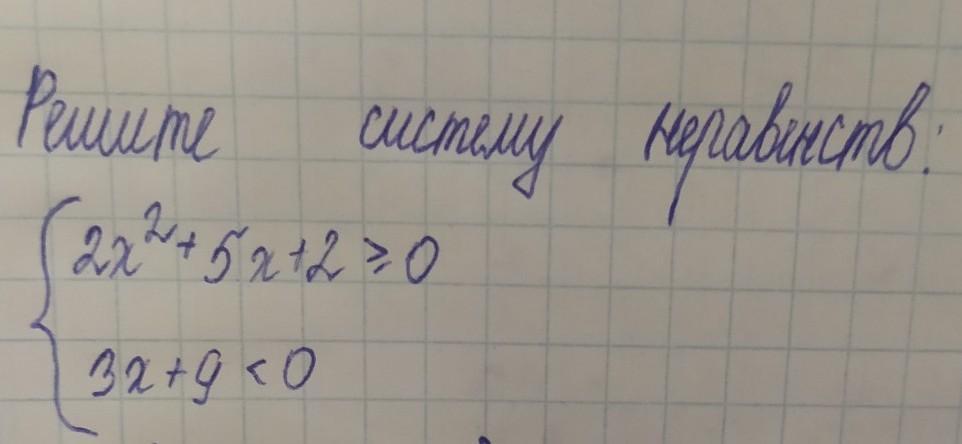 Решите систему неравенств:
2x²+5x+2≥0
3x+9<0